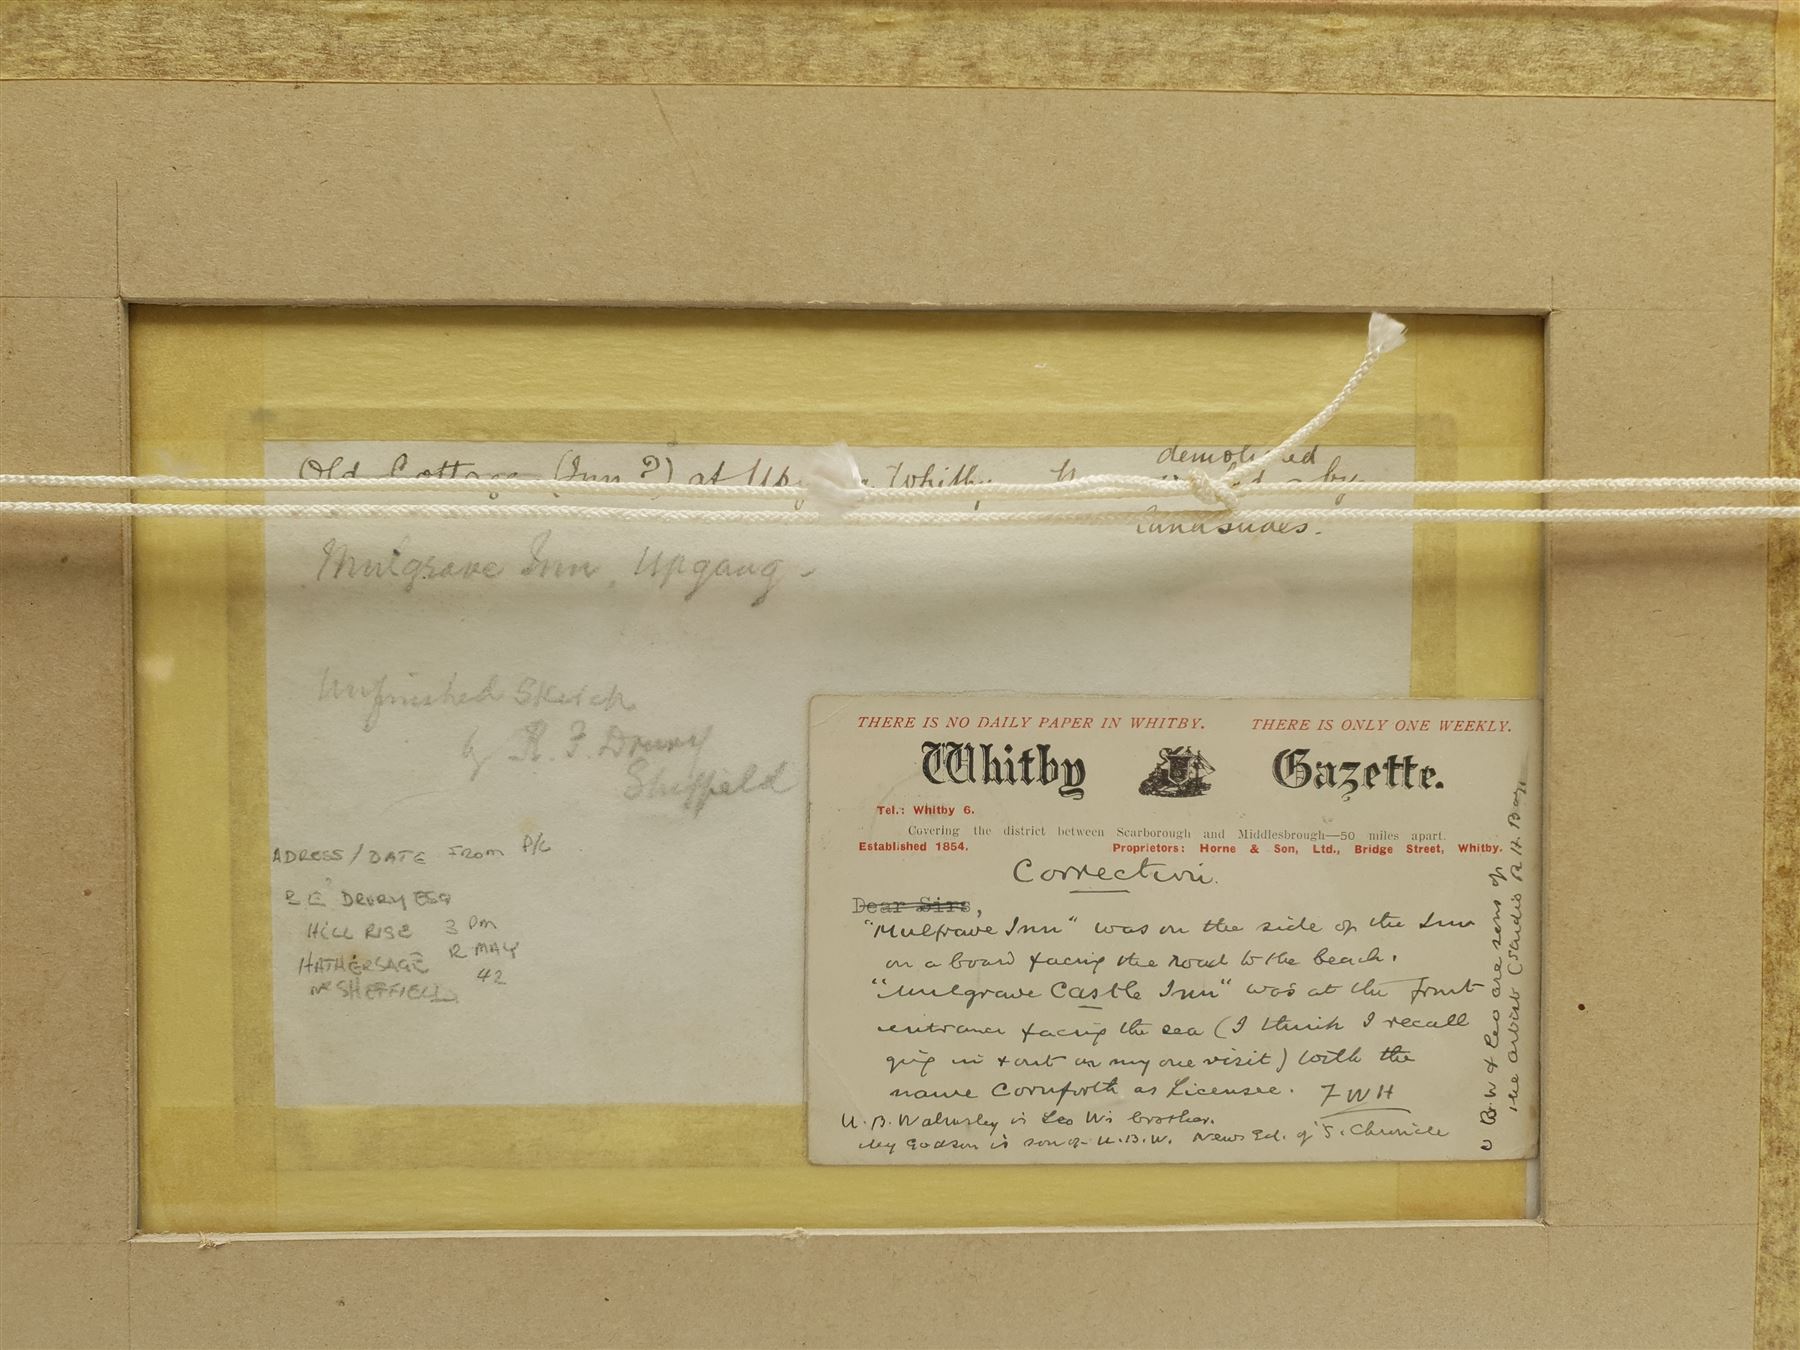 Old Cottage (Inn?) at Whitby
demolished
by
landslides.
Mulgrave Inn, Upgang -
Unfinished Sketch
by R. F. Drury
Sheffield
ADRESS / DATE FROM P/C
R E DRURY ESQ
HILL RISE 3 PM
HATHERSAGE 12 MAY
Nr SHEFFIELD 42
THERE IS NO DAILY PAPER IN WHITBY. THERE IS ONLY ONE WEEKLY.
Whitby Gazette.
Tel.: Whitby 6.
Covering the district between Scarborough and Middlesbrough—50 miles apart.
Established 1854. Proprietors: Horne & Son, Ltd., Bridge Street, Whitby.
Correction.
Dear Sirs,
"Mulgrave Inn" was on the side of the Inn
on a board facing the road to the beach.
"Mulgrave Castle Inn" was at the front
entrance facing the sea (I think I recall
going in & out on my one visit) with the
name Cornforth as Licensee. FWH
U. B. Walmsley is Leo W's brother.
My Godson is son of U.B.W. News Ed. of S. Chronicle
U B. W & Leo are sons of
the artist R. H. Bay